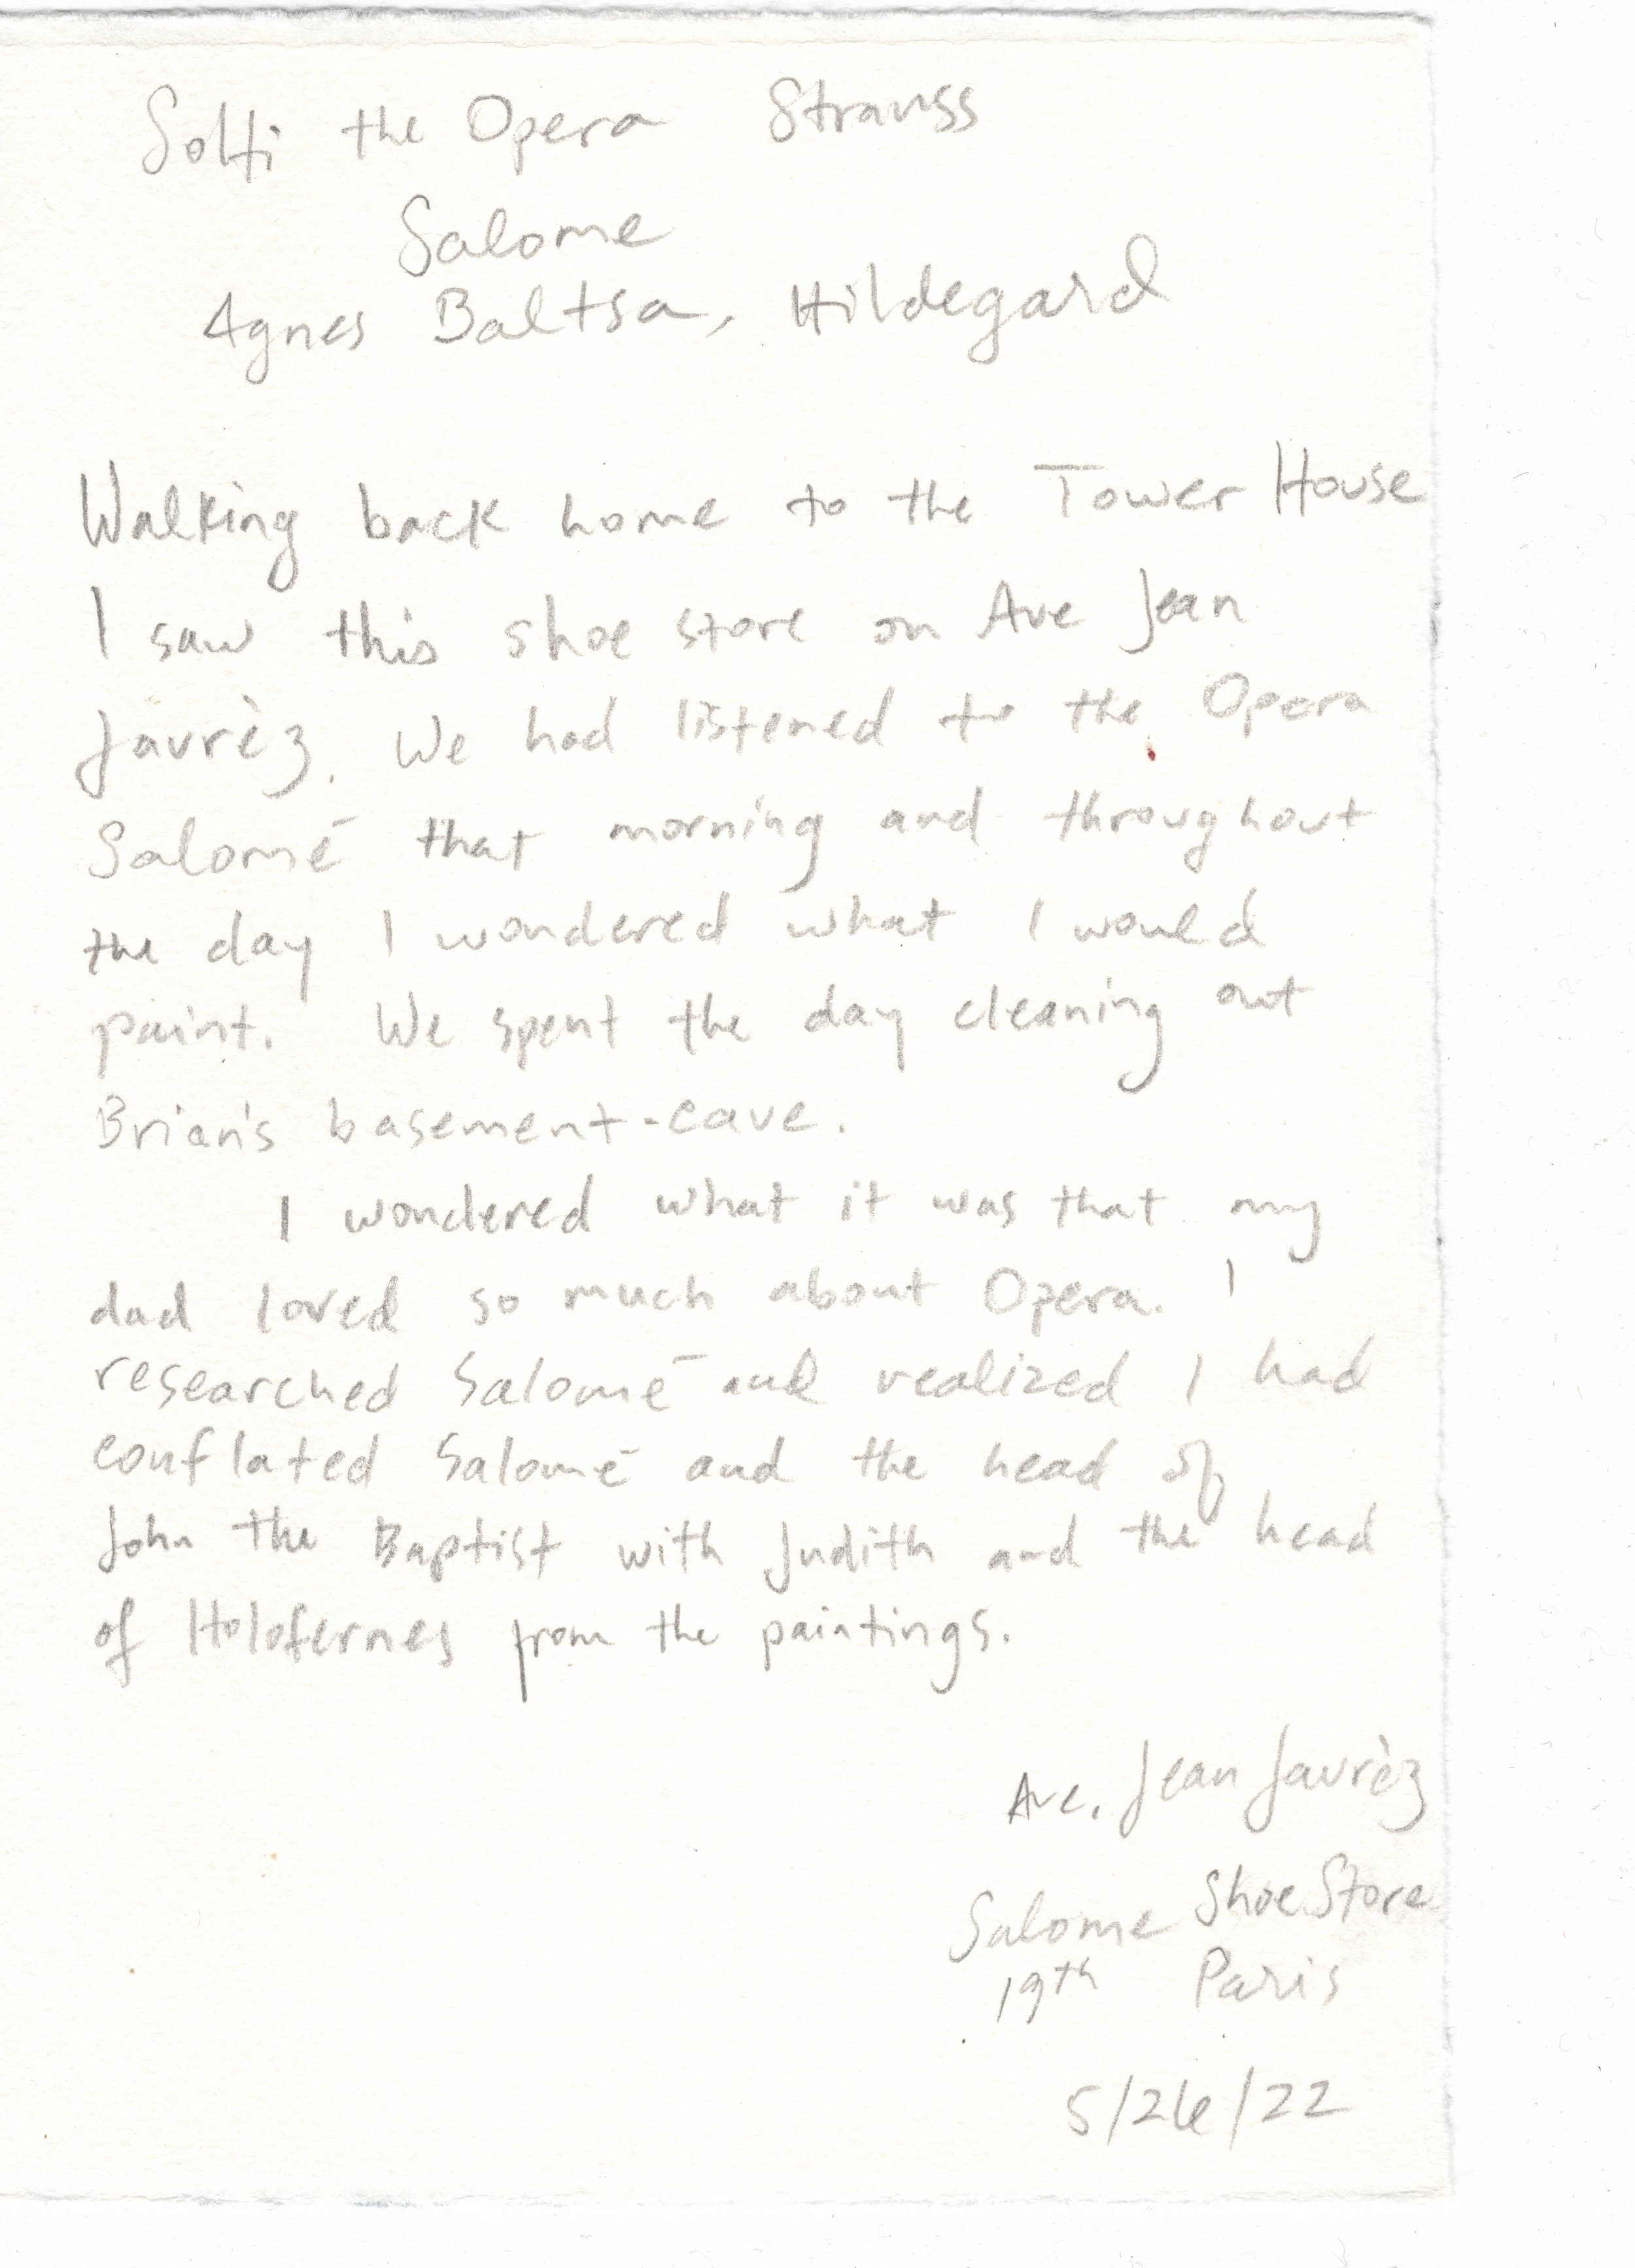 Solti the Opera Strauss
Salome
Agnes Baltsa, Hildegard
Walking back home to the Tower House
I saw this shoe store on Ave Jean
Jaurèz. We had listened to the Opera
Salomé that morning and throughout
the day I wondered what I would
paint. We spent the day cleaning out
Brian's basement-cave.
I wondered what it was that my
dad loved so much about Opera. I
researched Salomé and realized I had
conflated Salomé and the head of
John the Baptist with Judith and the head
of Holofernes from the paintings.
Ave. Jean Jaurèz
Salome Shoe Store
19th Paris
5/26/22